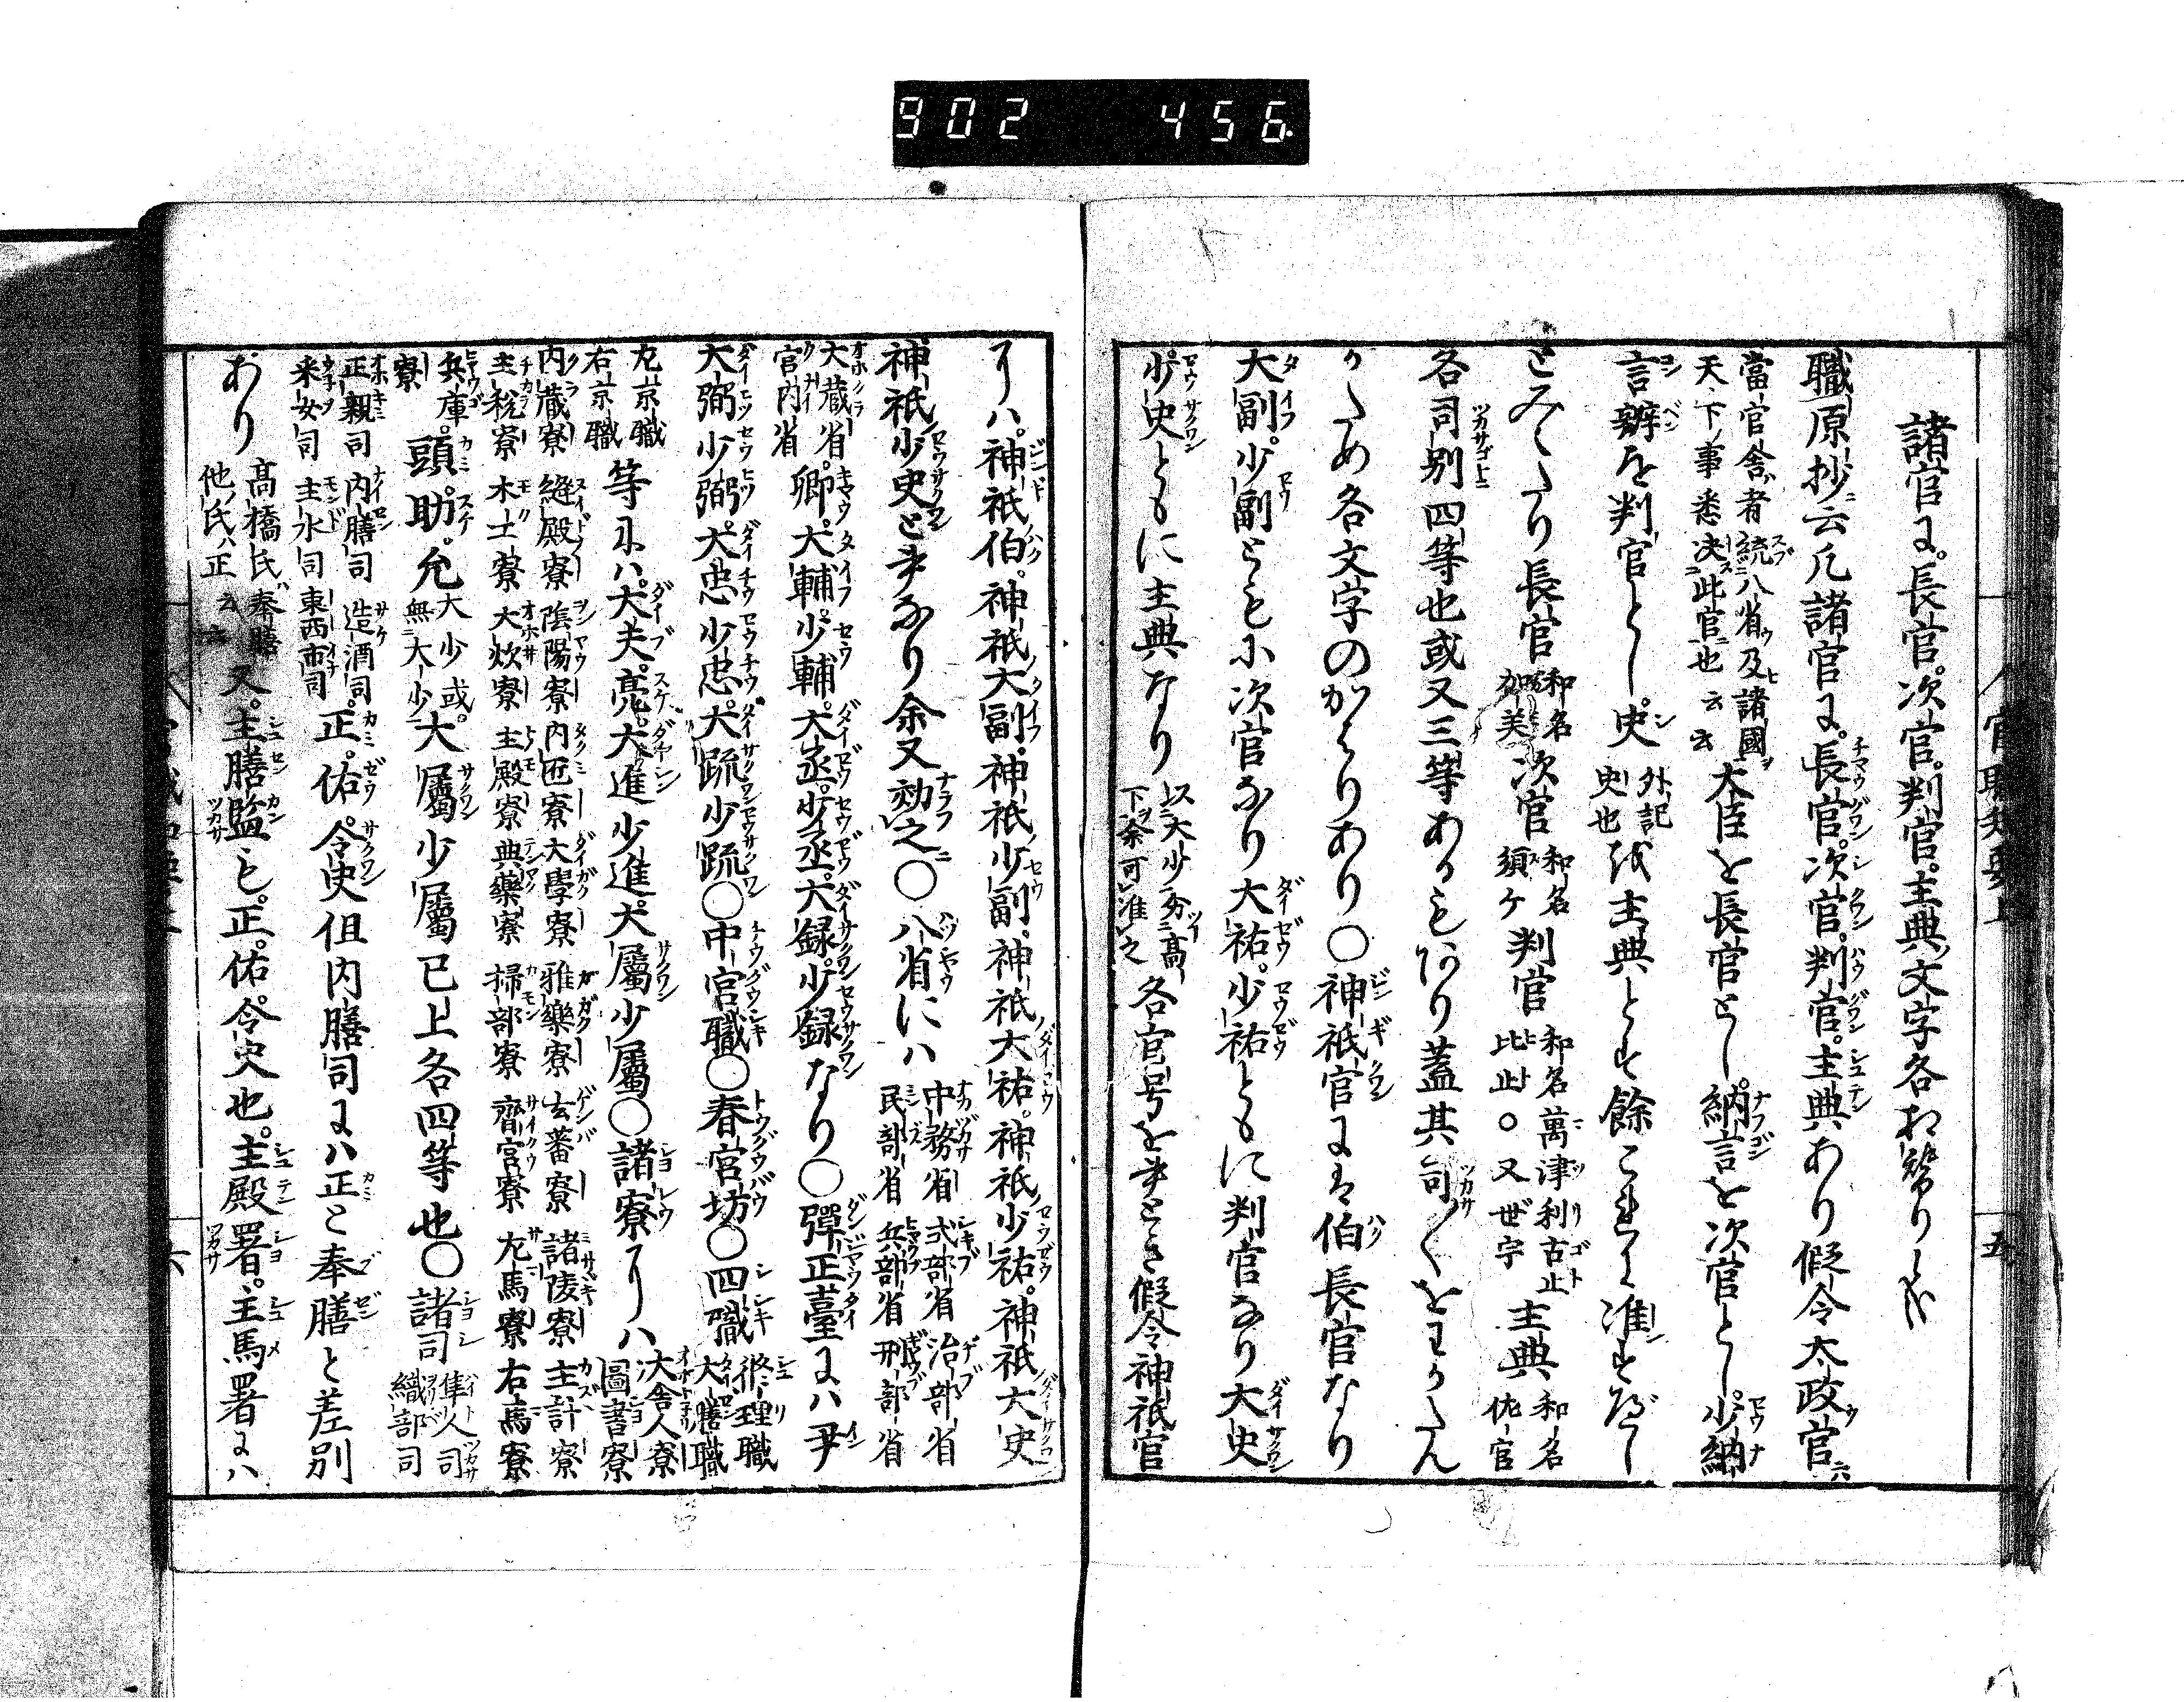 902 456
諸官に。長官。次官。判官。主典文字各相替りし
職原抄ニ云凡諸官に。長官。次官。判官。主典あり假令太政官六
當官舎者統八省及諸國
天下事悉决此官也云云
大臣を長官とし。納言を次官とし。少納
言辨を判官とし。史
外記
史也
を主典とす餘これに准ずべし
とみへたり長官
和名
加美
次官
和名
須ケ
判官
和名萬津利古止
比止○又世字
主典
和名
佐官
各司別四等也或又三等あるもあり蓋其司〱をわかたん
がため各文字のかはりあり○神祇官には伯長官なり
大副。少副ともに次官なり大祐。少祐ともに判官なり大史
少史ともに主典なり
各官号を書とき假令神祇官
神祇伯。神祇大副。神祇少副。神祇大祐。神祇少祐。神祇大史
神祇少史と書なり余又効之○八省にハ
中務省 式部省 治部省
民部省 兵部省 刑部省
大蔵省
宮内省
卿。大輔。少輔。大丞。少丞。大録。少録なり○彈正臺にハ尹
大弼少弼。大忠少忠。大疏少疏○中宮職○春宮坊○四職
修理職
大膳職
左京職
右京職
等にハ大夫。亮。大進少進。大屬少屬○諸寮
大舎人寮
圖書寮
内蔵寮 縫殿寮 陰陽寮 内匠寮 大學寮 雅樂寮 玄蕃寮 諸陵寮 主計寮
主税寮 木工寮 大炊寮 主殿寮 典藥寮 掃部寮 齊宮寮 左馬寮 右馬寮
兵庫
寮
頭。助。允
大少或
無大少
大屬少屬已上各四等也○諸司
隼人司
織部司
正親司 内膳司 造酒司
采女司 主水司 東西市司
正。佑。令史但内膳司にハ正と奉膳と差別
あり
髙橋氏ハ奉膳
他氏ハ正云云
又。主膳監も。正。佑。令史也。主殿署。主馬署にハ